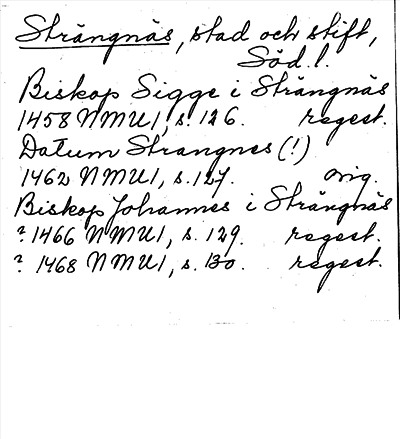 Strängnäs, stad och stift,
Söd. l.
Biskop Sigge i Strängnäs
1458 NMU1, s. 126. regest.
Datum Strangnes (!)
1462 NMU1, s. 127. orig.
Biskop Johannes i Strängnäs
? 1466 NMU1, s. 129. regest.
? 1468 NMU1, s. 130. regest.